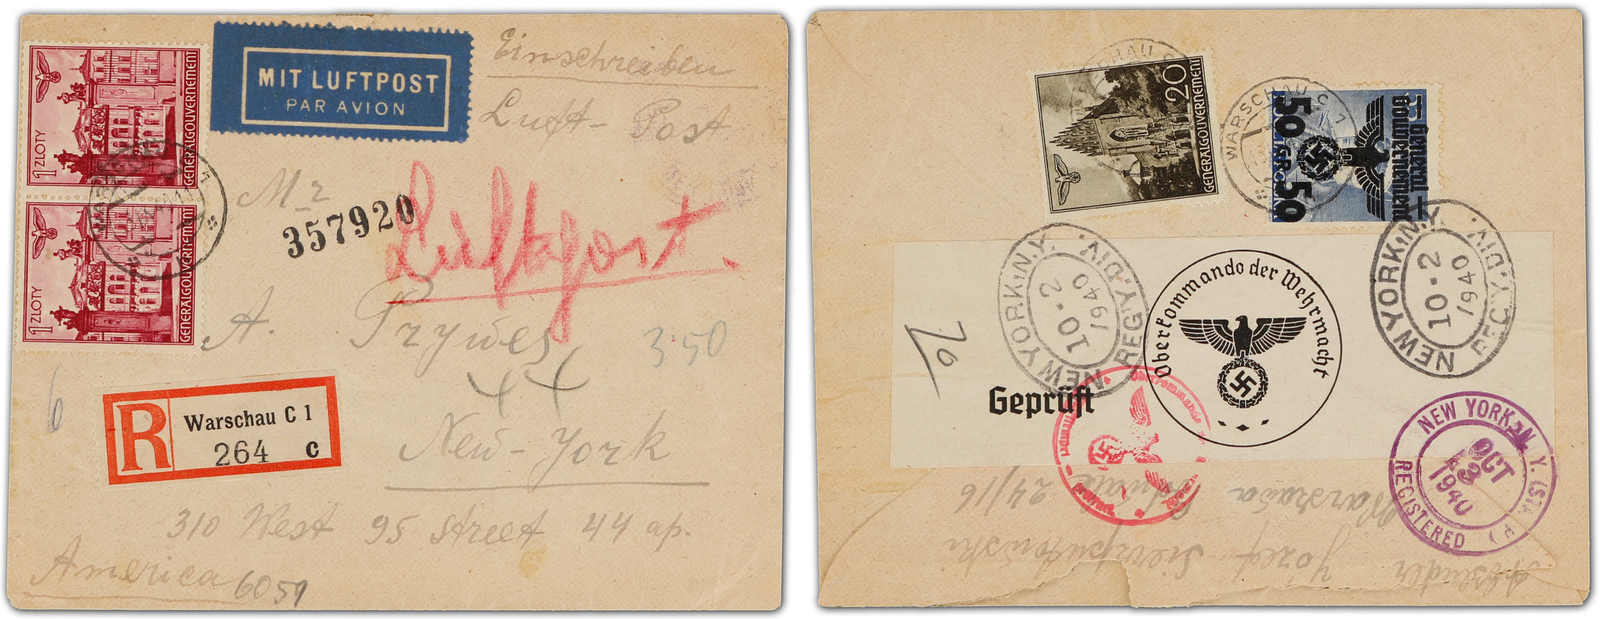 1 ZLOTY
GENERALGOUVERNEMENT
1 ZLOTY
GENERALGOUVERNEMENT
MIT LUFTPOST
PAR AVION
Einschreiben
Luft-Post
Mr
357920
Luftpost.
A. Prywes
3.50
44
New-York
6
R
Warschau C 1
264 c
310 West 95 Street 44 ap.
America
6059
20
GENERALGOUVERNEMENT
WARSCHAU C 1
50 GR 50
General
Gouvernement
NEW YORK, N.Y.
10-2
1940
REG'Y. DIV.
NEW YORK, N.Y.
10-2
1940
REG'Y. DIV.
Oberkommando der Wehrmacht
Geprüft
Oberkommando
NEW YORK, N. Y.
OCT
3
1940
REGISTERED
Warszawa 24/16
Absender Józef